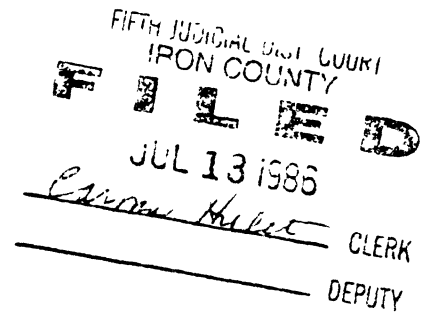 FIFTH JUDICIAL DIST COURT
IRON COUNTY
FILED
JUL 13 1986
CLERK
DEPUTY